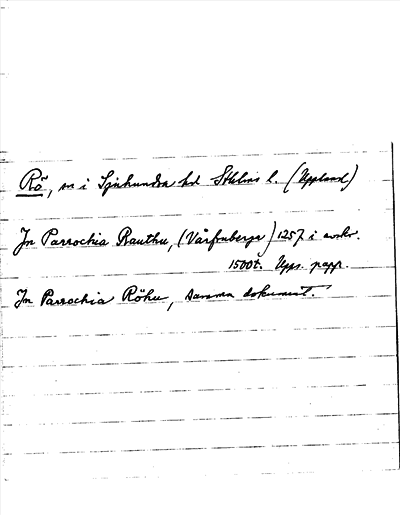 Rö, sn i Sjuhundra hd Sthlms l. (Uppland)
In Parrochia Rauthu, (Vårfruberga) 1257 i avskr.
1500t. Upps. papp.
In Parrochia Röhu, samma dokument.